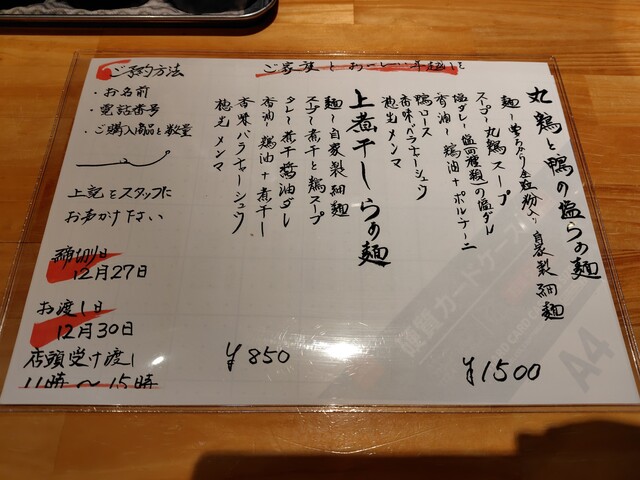 ご家族とおいしい年越しを
丸鶏と鴨の塩らぁ麺
麺~雪ちから全粒粉入り自家製細麺
スープ~丸鶏スープ
塩ダレ~塩(四種類)の塩ダレ
香油~鶏油+ポルチーニ
鴨ロース
香味バラチャーシュウ
穂先メンマ
¥1500
上煮干しらぁ麺
麺~自家製細麺
スープ~煮干と鶏スープ
タレ~煮干醤油ダレ
香油~鶏油+煮干し
香味バラチャーシュウ
穂先メンマ
¥850
ご予約方法
・お名前
・電話番号
・ご購入商品と数量
上記をスタッフに
お声がけ下さい
締切り日
12月27日
お渡し日
12月30日
店頭受け渡し
11時~15時
硬質カードケース
A4